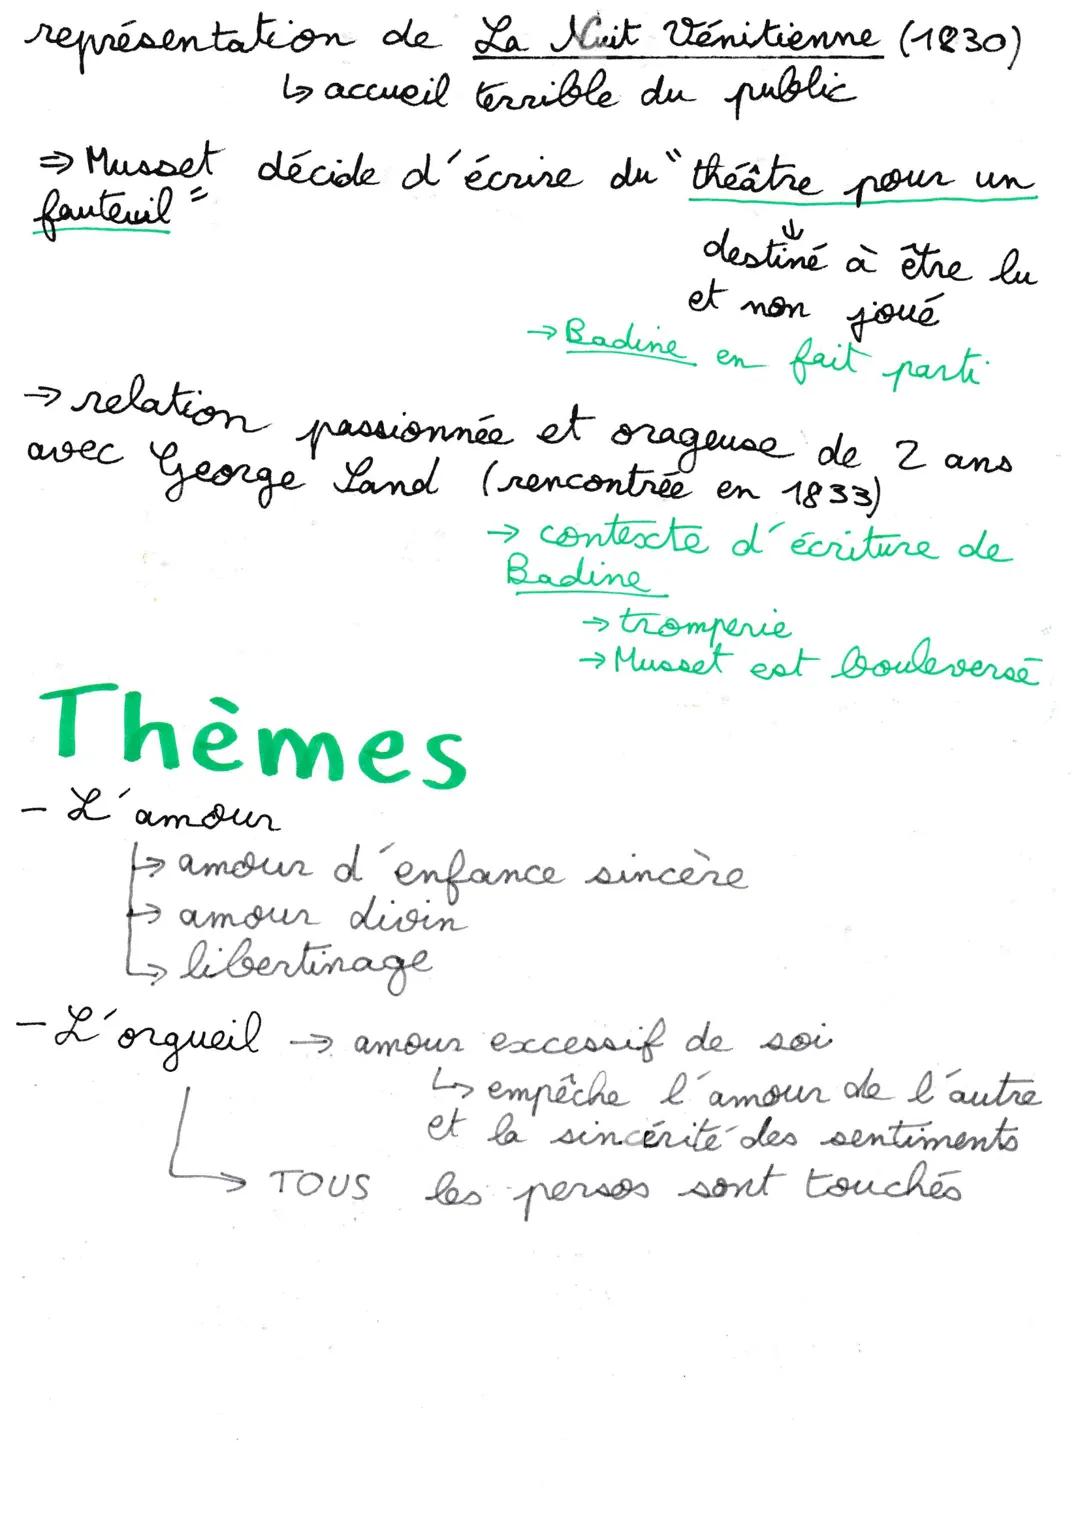 représentation de La Nuit Vénitienne (1830)
↳ accueil terrible du public
⇒ Musset décide d'écrire du "théâtre pour un
fauteuil"
↓
destiné à être lu
et non joué
→ Badine en fait parti
→ relation passionnée et orageuse de 2 ans
avec George Sand (rencontrée en 1833)
→ contexte d'écriture de
Badine
→ tromperie
→ Musset est bouleversé
Thèmes
- L'amour
↳ amour d'enfance sincère
↳ amour divin
↳ libertinage
- L'orgueil → amour excessif de soi
↳ empêche l'amour de l'autre
et la sincérité des sentiments
↳ TOUS les persos sont touchés